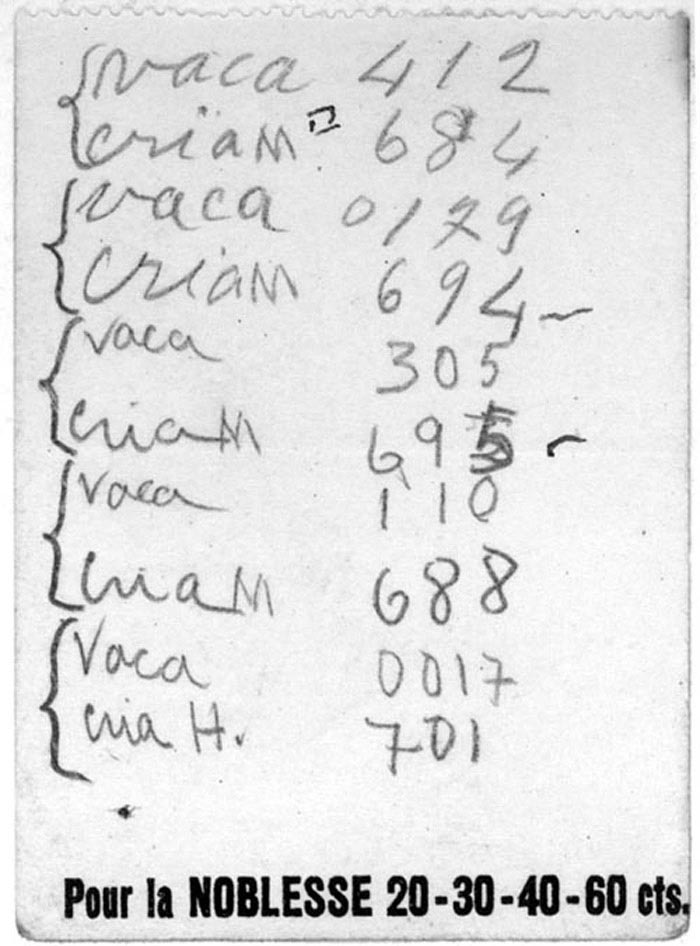 vaca 412
cria M 684
vaca 0129
cria M 694 –
vaca 305
cria M 695 –
vaca 110
cria M 688
Vaca 0017
cria H. 701
Pour la NOBLESSE 20-30-40-60 cts.